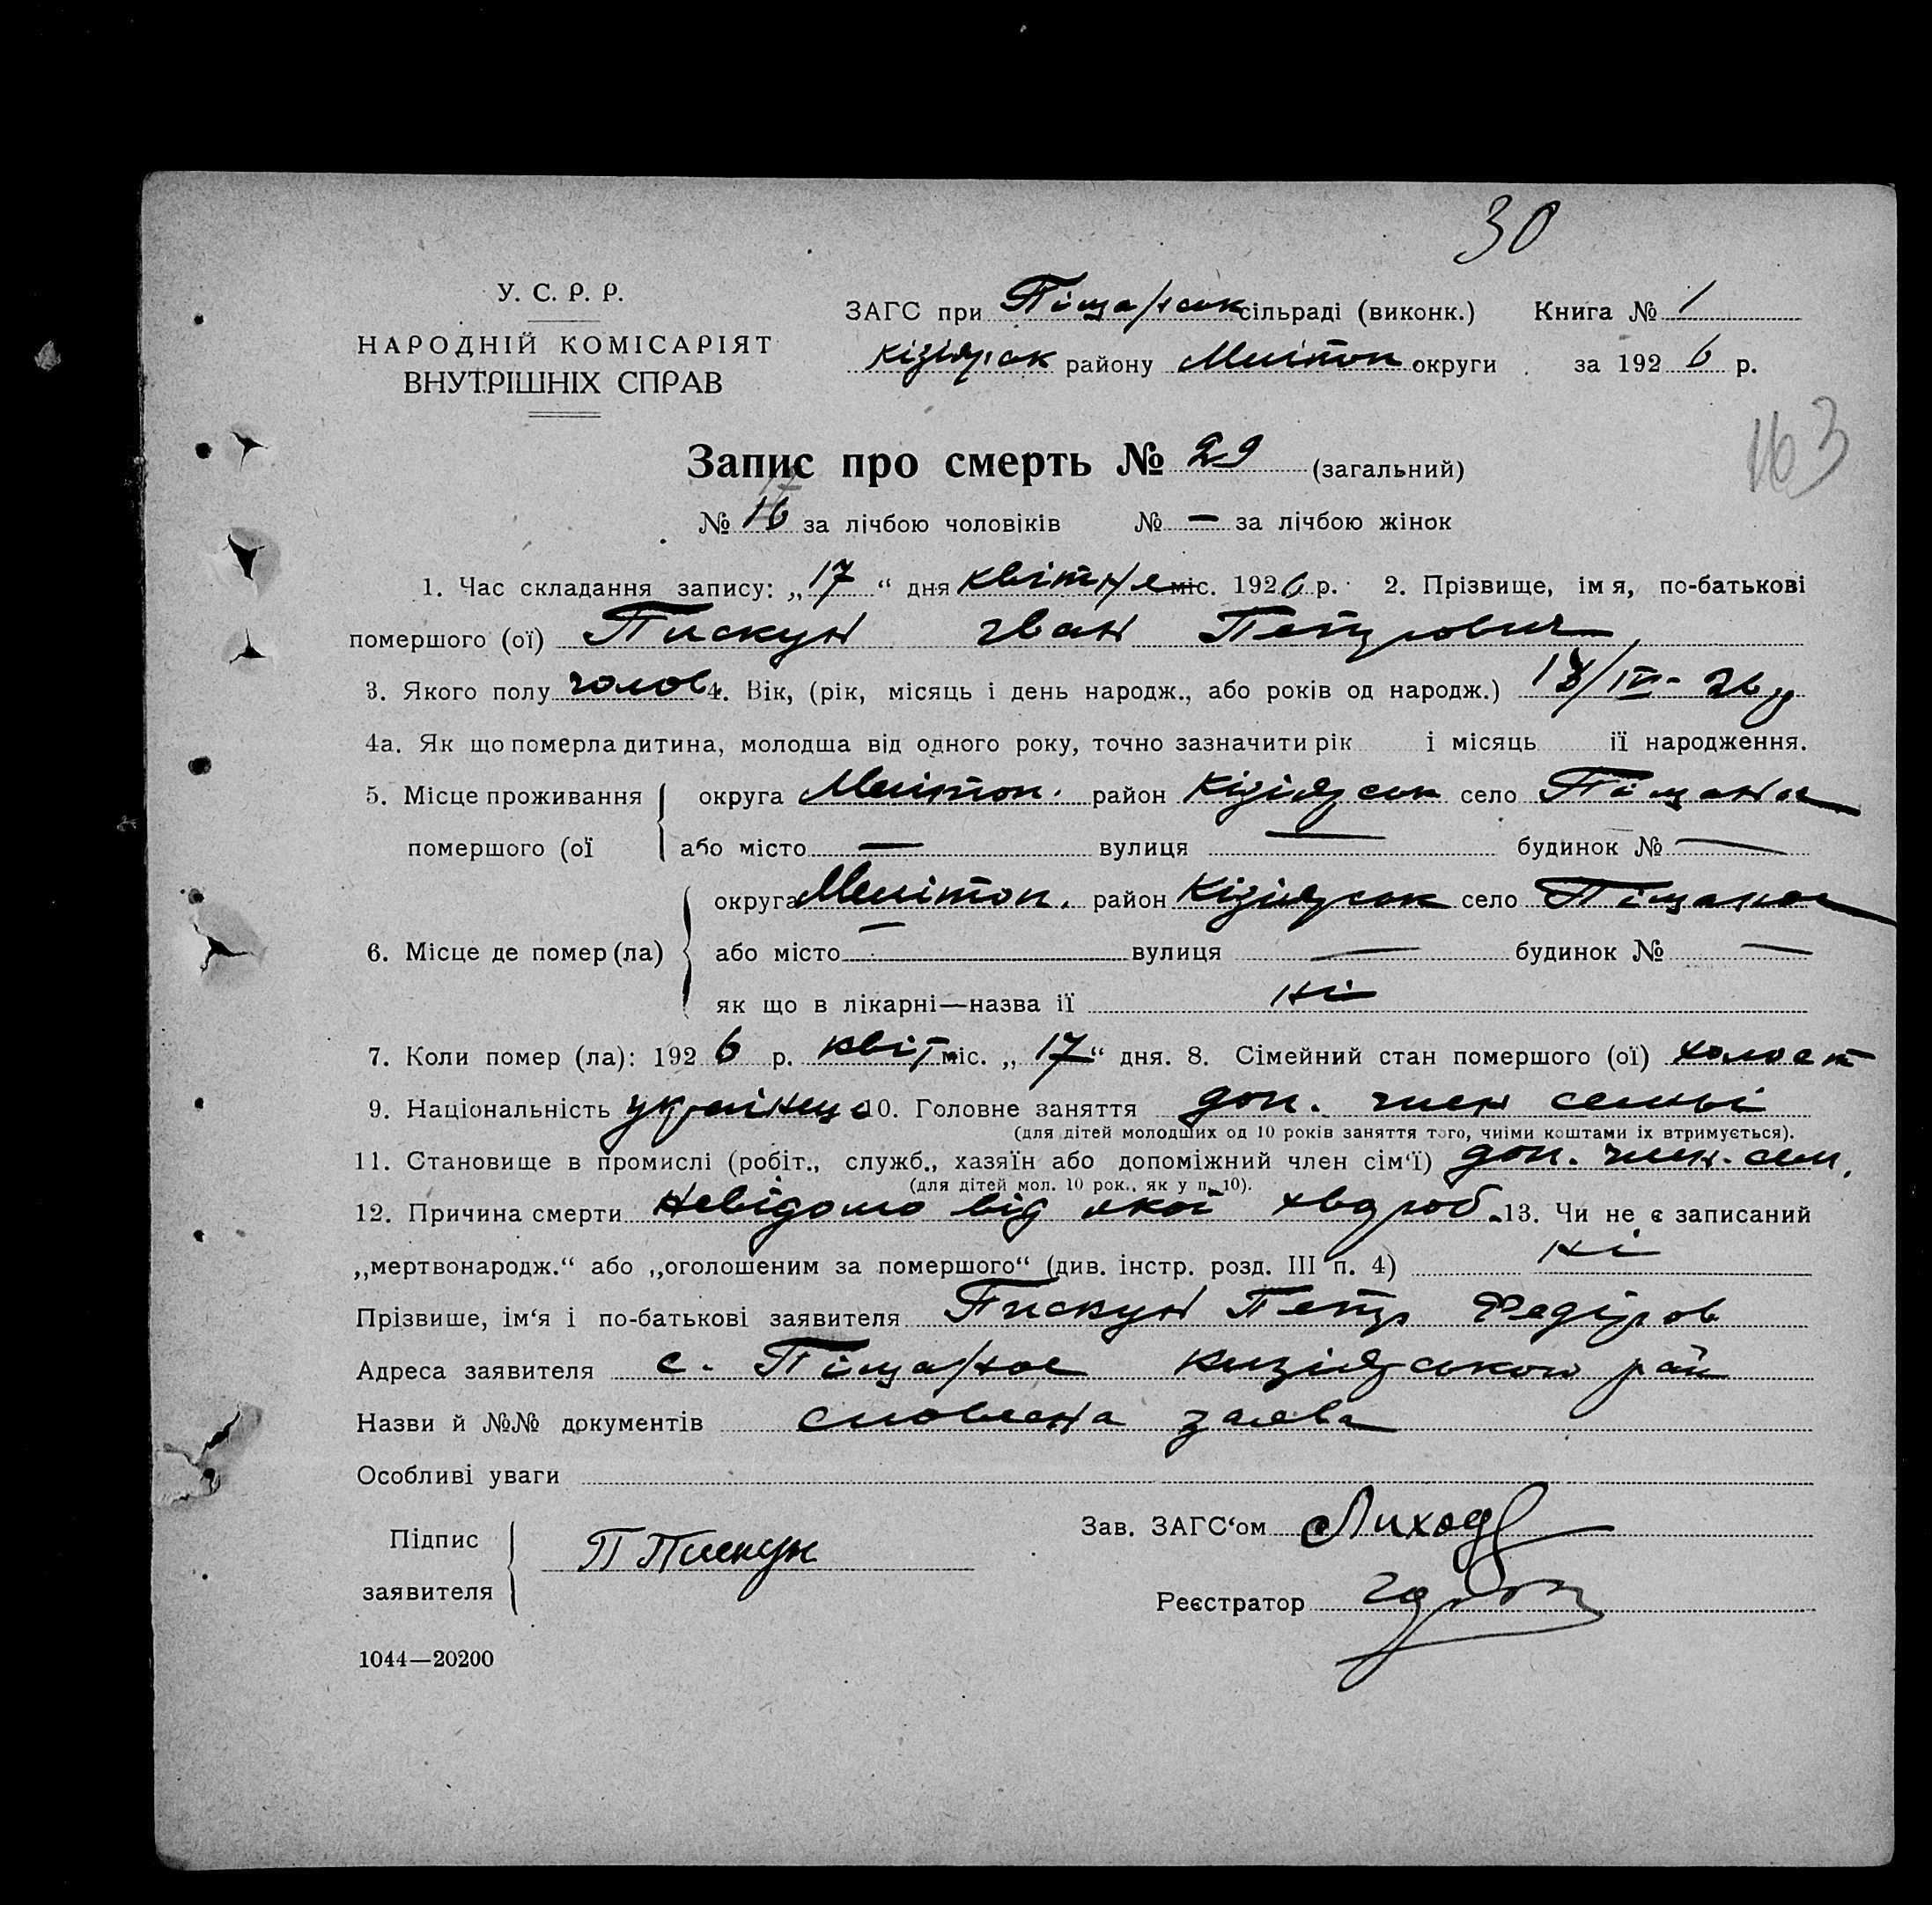 30
У. С. Р. Р.
НАРОДНІЙ КОМІСАРІЯТ
ВНУТРІШНІХ СПРАВ
ЗАГС при Піщанськ сільраді (виконк.) Книга № 1
Кізіярськ району Мелітоп округи за 1926 р.
163
Запис про смерть № 29 (загальний)
17
№ 16 за лічбою чоловіків № — за лічбою жінок
1. Час складання запису: „17“ дня квітня міс. 1926 р. 2. Прізвище, імя, по-батькові
помершого (ої) Пискун Іван Петрович
3. Якого полу чолов 4. Вік, (рік, місяць і день народж., або років од народж.) /IV-26 р
4а. Як що померла дитина, молодша від одного року, точно зазначити рік і місяць її народження.
5. Місце проживання округа Меліпоп. район Кізіярськ село Піщаное
помершого (ої або місто — вулиця — будинок № —
округа Меліпоп. район Кізіярськ село Піщаное
6. Місце де помер (ла) або місто — вулиця — будинок № —
як що в лікарні—назва її ні
7. Коли помер (ла): 1926 р. квіт міс. „17“ дня. 8. Сімейний стан помершого (ої) холост
9. Національність українец 10. Головне заняття доп. член семьі
(для дітей молодших од 10 років заняття того, чиїми коштами їх втримується).
11. Становище в промислі (робіт., служб., хазяїн або допоміжний член сім‘ї) доп. член. сем.
(для дітей мол. 10 рок., як у п. 10).
12. Причина смерти невідомо від якої хвороб. 13. Чи не є записаний
„мертвонародж.“ або „оголошеним за помершого“ (див. інстр. розд. III п. 4) ні
Прізвише, ім‘я і по-батькові заявителя Пискун Петр Федіров
Адреса заявителя с. Піщаное Кизіярського рай
Назви й №№ документів словесна заява
Особливі уваги
Підпис
заявителя П Пискун
Зав. ЗАГС‘ом
Реєстратор
1044—20200